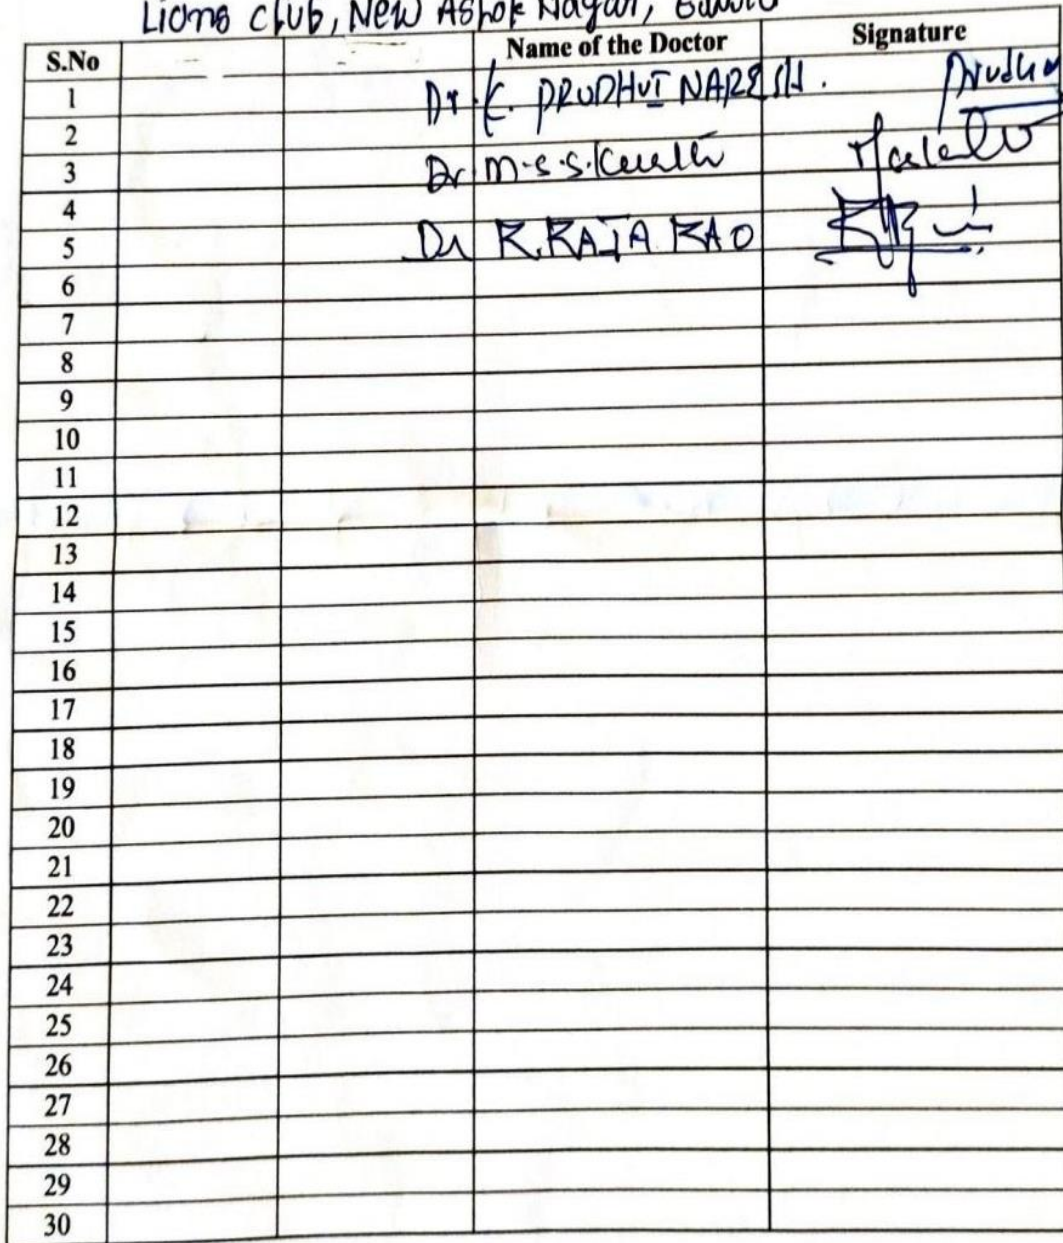 Lions club, New Ashok Nagar,
S.No Name of the Doctor Signature
1 Dr. K. PRUDHVI NARESH.
2
3 Dr M.S.S.
4
5 Dr K. RAJA RAO
6
7
8
9
10
11
12
13
14
15
16
17
18
19
20
21
22
23
24
25
26
27
28
29
30